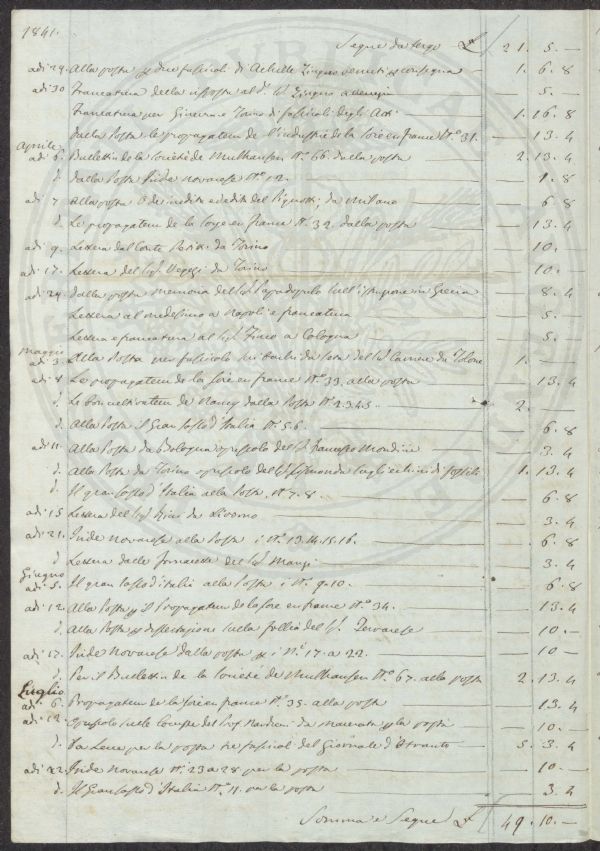 1841.
Segue da tergo £ 21. 5. —
adi 29. Alla posta p due fascicoli di Achille Zingno venuti p consegna — 1. 6. 8
adi 30 Francatura della risposta al d. Sig. Zingno — 5. —
Francatura per Ginevra e Torino di fascicoli degli Atti — 1. 16. 8
Dalla Posta le propagateur de l'industrie de la Soie en france N.° 31. — 13. 4
Aprile
adi 6. Bullettin de la Société de Multhausen N.° 66. dalla posta — 2. 13. 4
d. dalla Posta Iride novarese N.° 12. — 1. 8
adi 7 Alla posta da Milano — 6 8
d. Le propagateur de la Soye en france N.° 32. dalla posta — 13. 4
adi 9. Lettera dal Conte da Torino — 10. —
adi 17. Lettera del Sig. Vegezzi da Torino — 10. —
adi 24 Dalla posta memoria del Sig. sull'istruzione in Grecia — 8. 4
Lettera al medesimo a Napoli e francatura — 5. —
Lettera e francatura al Sig. a Cologna — 5. —
Maggio
adi 3. Alla Posta per fascicolo sui bachi da seta del Sig. da Tolone — 1. —
adi 4 Le propagateur de la Soie en france N.° 33. alla posta — 13. 4
d. Le bon cultivateur de Nancy dalla Posta N.° 2.3.4.5. — 2. —
d. Alla Posta il Gran Sasso d'Italia N.° 5.6. — 6. 8
adi 11. Alla Posta da Bologna opuscolo del Sig. Francesco Mondini — 3. 4
d. Alla Posta da Torino opuscolo del Sig. Sismonda sugli echinidi fossili — 1. 13. 4
d. Il gran Sasso d'Italia alla Posta N.° 7.8. — 6. 8
adi 15 Lettera del Sig. da Livorno — 3. 4
adi 21. Iride novarese alla Posta i N.° 13.14.15.16. — 6. 8
d Lettera dalle Fornacette del Sig. Mangi — 3. 4
Giugno
adi 5. Il gran Sasso d'Italia alla Posta i N.° 9.10. — 6. 8
adi 12. Alla Posta p il Propagateur de la Soie en france N.° 34. — 13. 4
d. Alla Posta p dissertazione sulla follia del S. — 10 —
adi 17. Iride Novarese dalla posta p i N.i 17. a 22. — 10 —
d. Per il Bullettin de la Société de Multhausen N.° 67. alla posta — 2. 13. 4
Luglio
adi 6. Propagateur de la Soie en france N.° 35. alla posta — 13. 4
adi 12. Opuscolo sulle Comete del Prof. da Macerata p la posta — 10. —
d. Da Lecce per la posta tre fascicoli del Giornale d'Otranto — 5. 3. 4
adi 22. Iride Novarese N.° 23 a 28 per la posta — 10 —
d. Il Gran Sasso d'Italia N.° 11. per la posta — 3. 4
Somma e Segue £ 49. 10. —